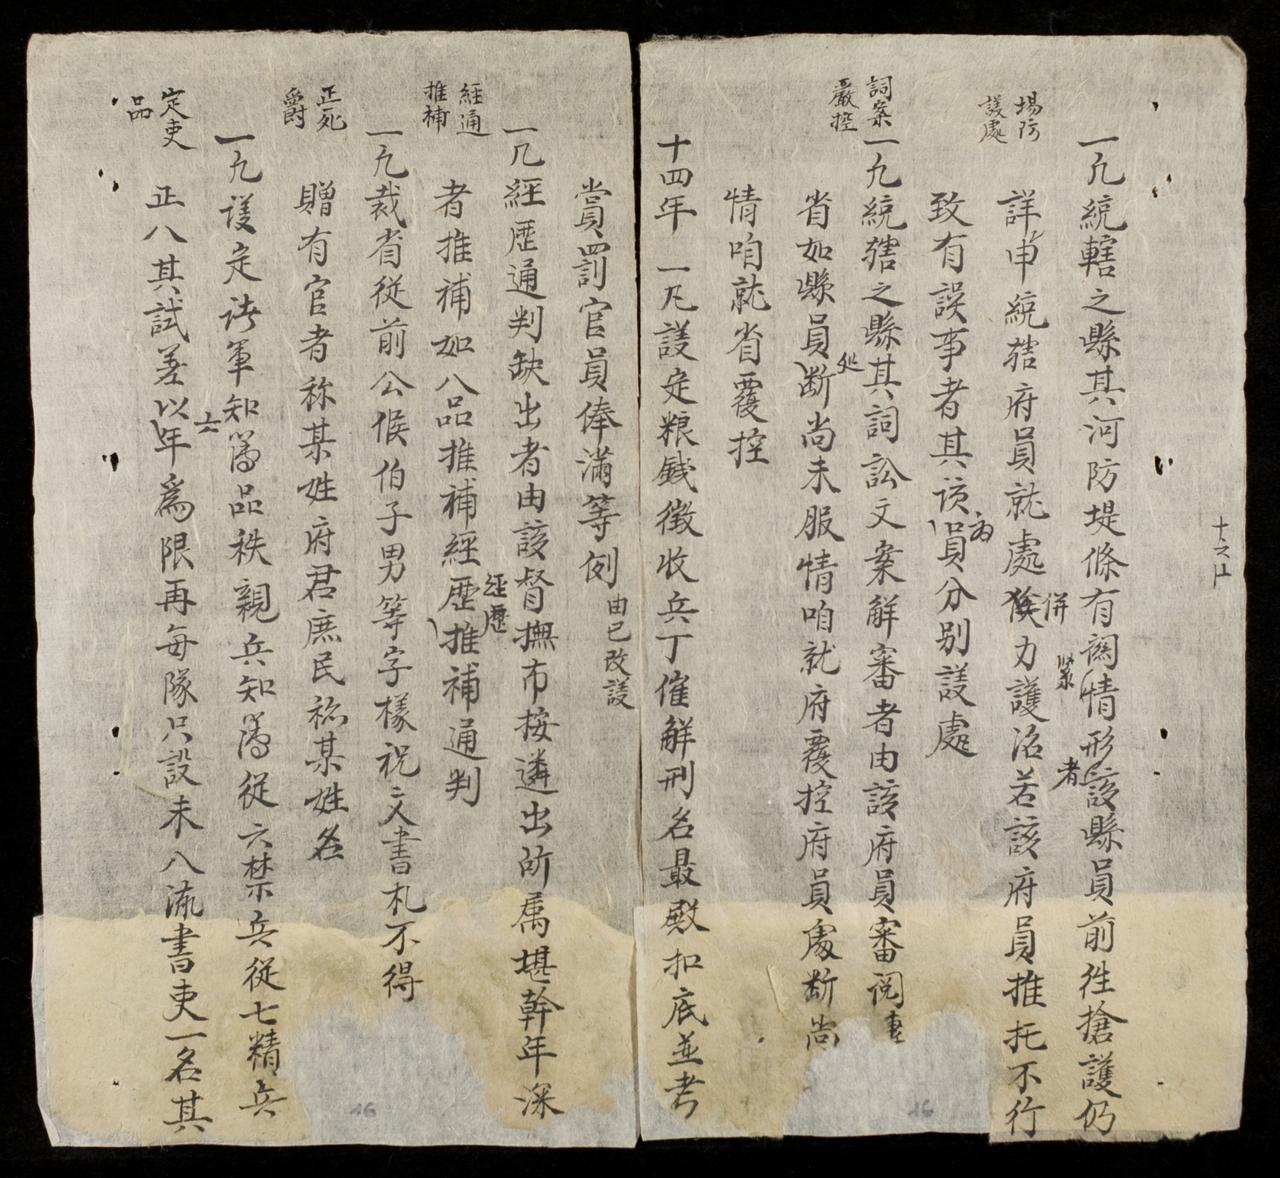 一凡統轄之縣其河防堤條有𨵿緊情形者該縣員前往搶護仍
場防
議處
詳申統轄府員就處併力護治若該府員推托不行
致有誤事者其該府員分別議處
詞案
嚴控
一凡統轄之縣其詞訟文案解審者由該府員審閱
省如縣員處斷尚未服情咱就府覆控府員處斷尚
情咱就省覆控
十四年 一凡議定粮錢徵收兵丁催解刑名最殿扣底並考
賞罰官員俸滿等例由已改議
一凡經歷通判缺出者由該督撫布按遴出所属堪幹年深
經通
推補
者推補如八品推補經歷經歷推補通判
一凡裁省從前公候伯子男等字樣祝文書札不得
正死
爵
贈有官者称某姓府君庶民称某姓名
一凡議定諸軍知簿品秩親兵知簿從六禁兵從七精兵
定吏
品
正八其試差以六年為限再每隊只設未八流書吏一名其
十六
16
16